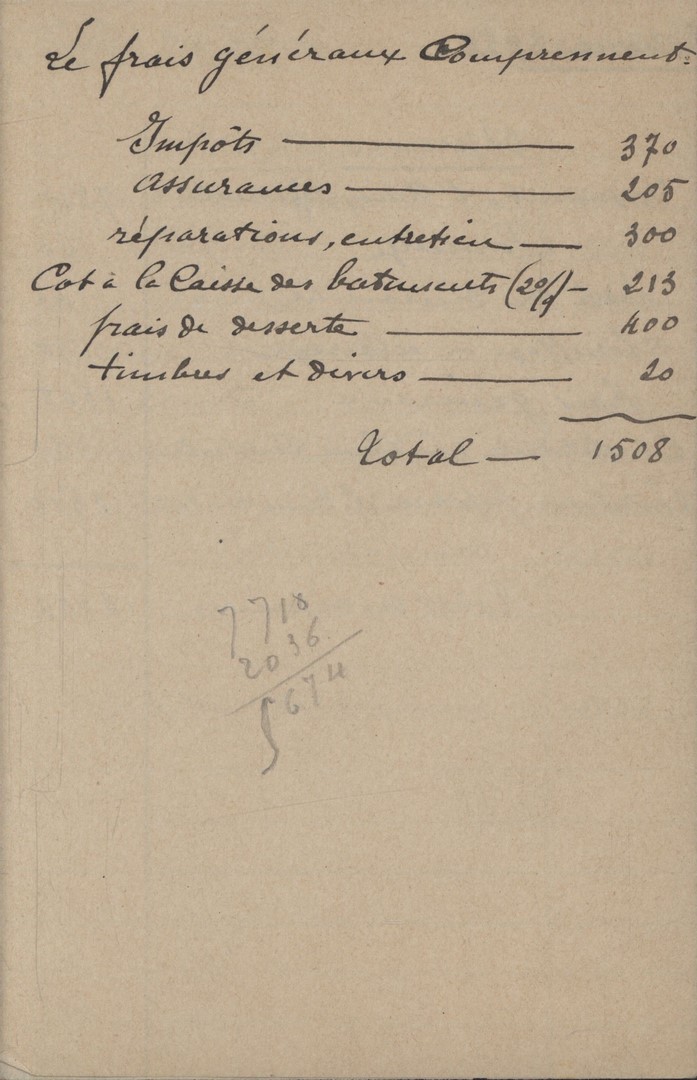 Le frais généraux Comprennent:
Impôts — 370
Assurances — 205
réparations, entretien — 300
Cot à la Caisse des batiments (2%) — 213
frais de desserte — 400
timbres et divers — 20
Total — 1508
7718
2036
5674